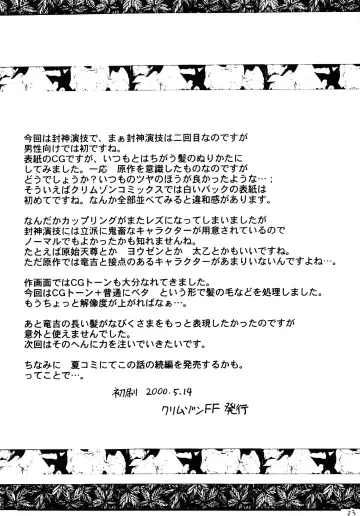 今回は封神演技で、まぁ封神演技は二回目なのですが
男性向けでは初ですね。
表紙のCGですが、いつもとはちがう髪のぬりかたに
してみました。一応　原作を意識したものなのですが
どうでしょうか？いつものツヤのほうが良かったような…；
そういえばクリムゾンコミックスでは白いバックの表紙は
初めてですね。なんか全部並べてみると違和感があります。
なんだかカップリングがまたレズになってしまいましたが
封神演技には立派に鬼畜なキャラクターが用意されているので
ノーマルでもよかったかも知れませんね。
たとえば原始天尊とか　ヨウゼンとか　太乙とかもいいですね。
ただ原作では竜吉と接点のあるキャラクターがあまりいないんですよね…。
作画面ではCGトーンも大分なれてきました。
今回はCGトーン＋普通にベタ　という形で髪の毛などを処理しました。
もうちょっと解像度が上がればなぁ…。
あと竜吉の長い髪がなびくさまをもっと表現したかったのですが
意外と使えませんでした。
次回はそのへんに力を注いでいきたいです。
ちなみに　夏コミにてこの話の続編を発売するかも。
ってことで…。
初刷　2000.5.14
クリムゾンFF 発行
33